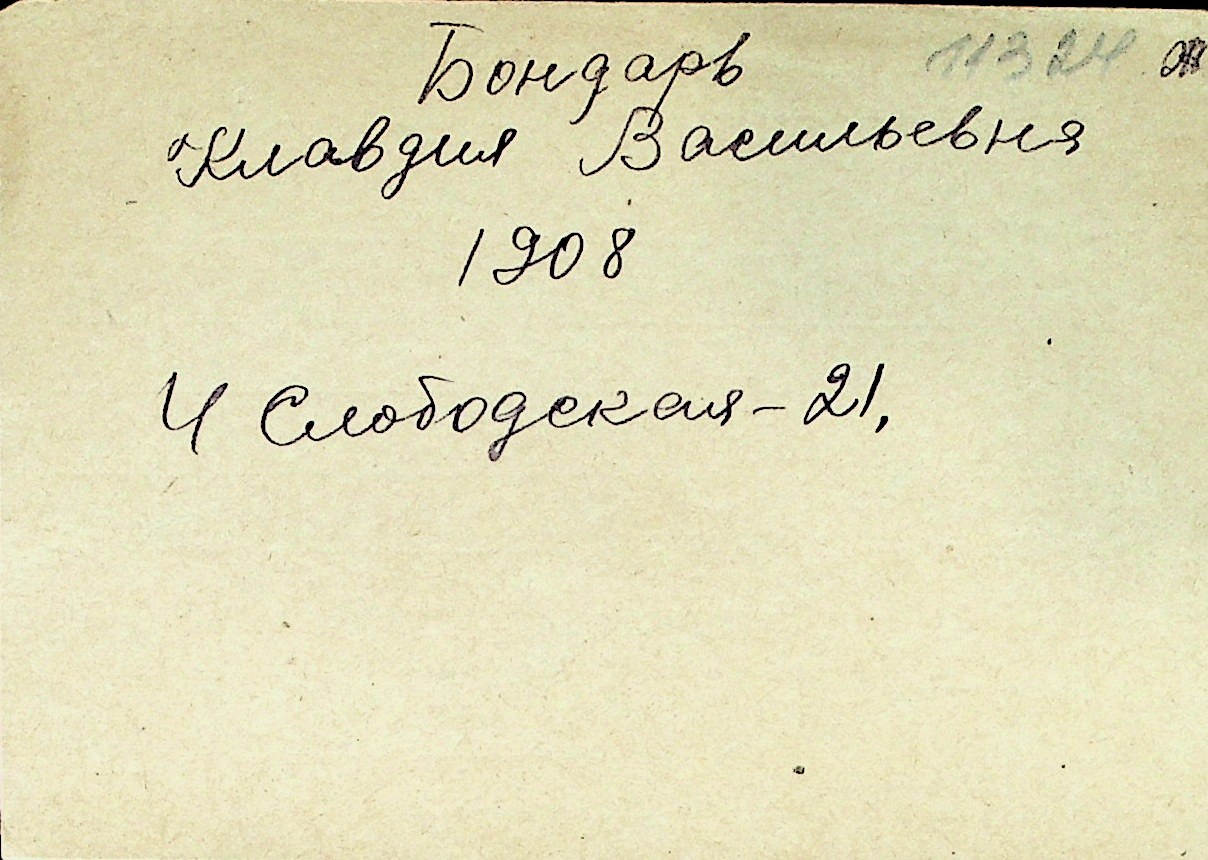 Бондарь 11324 Ж
Клавдия Васильевня
1908
4 Слободская - 21,